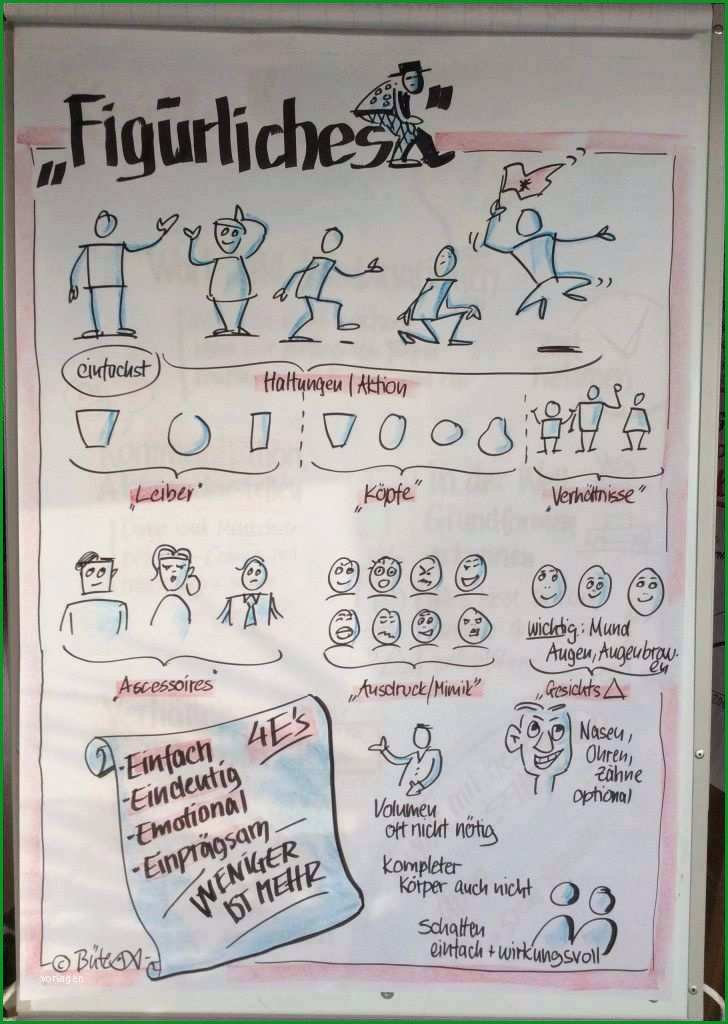 „Figürliches"
einfachst
Haltungen / Aktion
„Leiber"
„Köpfe"
„Verhältnisse"
wichtig: Mund
Augen, Augenbrau-
en
„Accessoires"
„Ausdruck/Mimik"
„Gesichts △
4E's
2
- Einfach
- Eindeutig
- Emotional
- Einprägsam
WENIGER
IST MEHR
Nasen,
Ohren,
Zähne
optional
Volumen
oft nicht nötig
Kompleter
Körper auch nicht
Schatten
einfach + wirkungsvoll
©
vorlagen